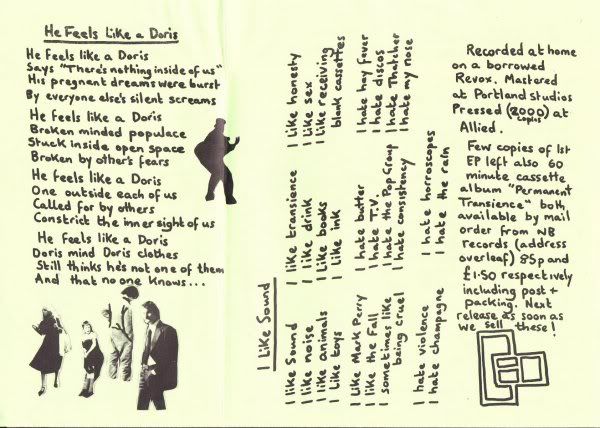 He Feels Like a Doris
He Feels like a Doris
Says "There's nothing inside of us"
His pregnant dreams were burst
By everyone else's silent screams
He feels like a Doris
Broken minded populace
Stuck inside open space
Broken by other's fears
He feels like a Doris
One outside each of us
Called for by others
Constrict the inner sight of us
He feels like a Doris
Doris mind Doris clothes
Still thinks he's not one of them
And that no one knows...
I Like Sound
I like Sound
I like noise
I like animals
I like toys
I like Mark Perry
I like the Fall
I sometimes like
being cruel
I hate violence
I hate champagne
I like transience
I like drink
I like books
I like ink
I hate butter
I hate T.V.
I hate the Pop Group
I hate consistency
I hate horroscopes
I hate the rain
I like honesty
I like sex
I like receiving
blank cassettes
I hate hay fever
I hate discos
I hate Thatcher
I hate my nose
Recorded at home
on a borrowed
Revox. Mastered
at Portland Studios
Pressed (2000 copies) at
Allied.
Few copies of 1st
EP left also 60
minute cassette
album "Permanent
Transience" both
available by mail
order from NB
records (address
overleaf) 85p and
£1.50 respectively
including post +
packing. Next
release as soon as
we sell these!